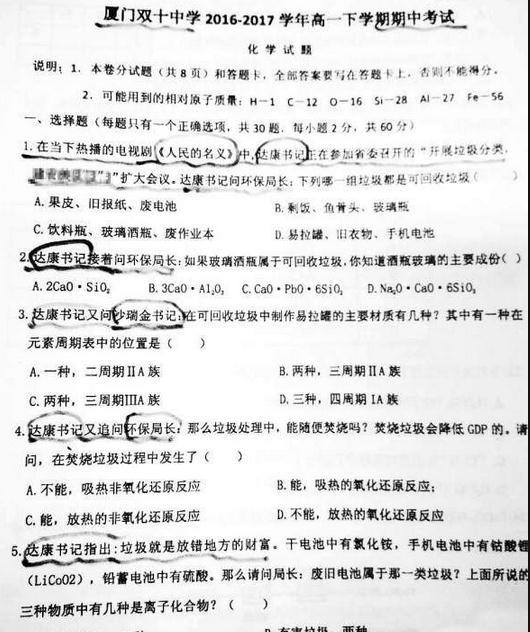 厦门双十中学 2016-2017 学年高一下学期期中考试
化 学 试 题
说明：1．本卷分试题（共 8 页）和答题卡，全部答案要写在答题卡上，否则不能得分。
2．可能用到的相对原子质量：H—1 C—12 O—16 Si—28 Al—27 Fe—56
一、选择题（每题只有一个正确选项，共 30 题，每小题 2 分，共 60 分）
1.在当下热播的电视剧《人民的名义》中,达康书记正在参加省委召开的“开展垃圾分类,
”扩大会议。达康书记问环保局长：下列哪一组垃圾都是可回收垃圾（
A.果皮、旧报纸、废电池 B.剩饭、鱼骨头、玻璃瓶
C.饮料瓶、玻璃酒瓶、废作业本 D.易拉罐、旧衣物、手机电池
2.达康书记接着问环保局长：如果玻璃酒瓶属于可回收垃圾,你知道酒瓶玻璃的主要成份( )
A.2CaO·SiO₂ B.3CaO·Al₂O₃ C.CaO·PbO·6SiO₂ D.Na₂O·CaO·6SiO₂
3.达康书记又问沙瑞金书记:在可回收垃圾中制作易拉罐的主要材质有几种？其中有一种在
元素周期表中的位置是（ ）
A.一种，二周期ⅡA 族 B.两种，三周期ⅡA 族
C.两种，三周期ⅢA 族 D.三种，四周期 IA 族
4.达康书记又追问环保局长：那么垃圾处理中，能随便焚烧吗？焚烧垃圾会降低 GDP 的。请
问，在焚烧垃圾过程中发生了（ ）
A.不能，吸热非氧化还原反应 B.能，吸热的氧化还原反应;
C.能，放热的非氧化还原反应 D.不能，放热的氧化还原反应
5.达康书记指出:垃圾就是放错地方的财富。干电池中有氯化铵，手机电池中有钴酸锂
（LiCoO2），铅蓄电池中有硫酸。那么请问局长：废旧电池属于那一类垃圾？上面所说的
三种物质中有几种是离子化合物？（ ）